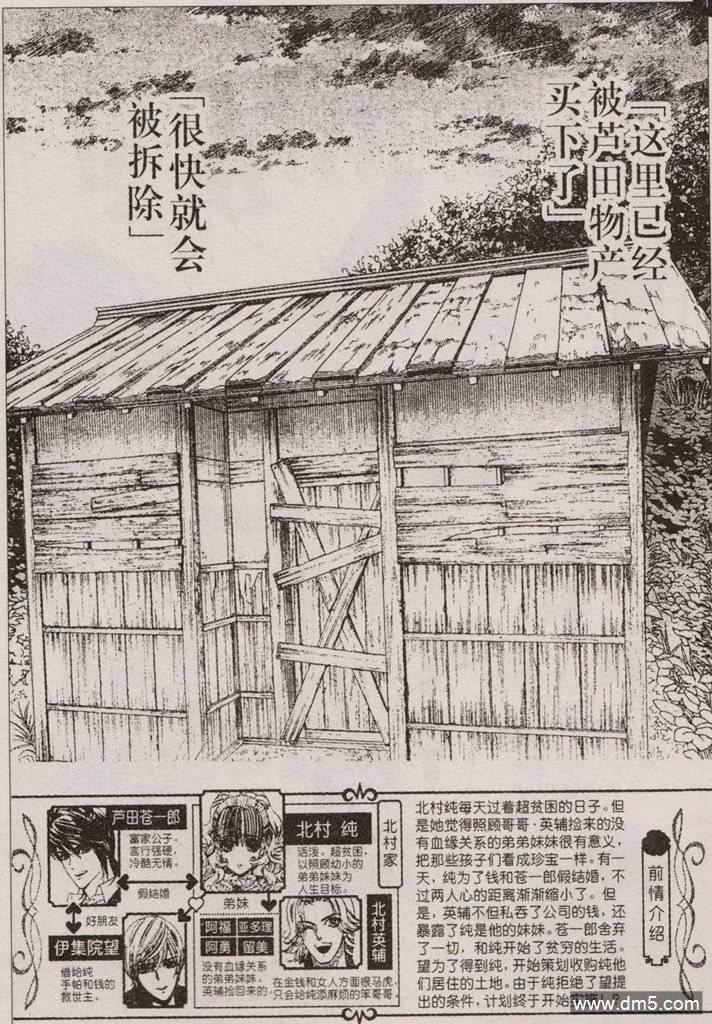 「这里已经
被芦田物产
买下了」
「很快就会
被拆除」
芦田苍一郎
富家公子，
言行强硬，
冷酷无情。
假结婚
好朋友
伊集院望
借给纯
手帕和钱的
救世主。
北村 纯
活泼。超贫困，
以照顾幼小的
弟弟妹妹为
人生目标。
北村家
弟妹
阿福 亚多理
阿勇 留美
没有血缘关系
的弟弟妹妹，
英辅捡回来的。
北村英辅
在金钱和女人方面很马虎，
只会给纯添麻烦的笨哥哥。
前情介绍
北村纯每天过着超贫困的日子。但
是她觉得照顾哥哥·英辅捡来的没
有血缘关系的弟弟妹妹很有意义，
把那些孩子们看成珍宝一样。有一
天，纯为了钱和苍一郎假结婚，不
过两人心的距离渐渐缩小了。但
是，英辅不但私吞了公司的钱，还
暴露了纯是他的妹妹。苍一郎舍弃
了一切，和纯开始了贫穷的生活。
望为了得到纯，开始策划收购纯他
们居住的土地。由于纯拒绝了望提
出的条件，计划终于开始
www.dm5.com